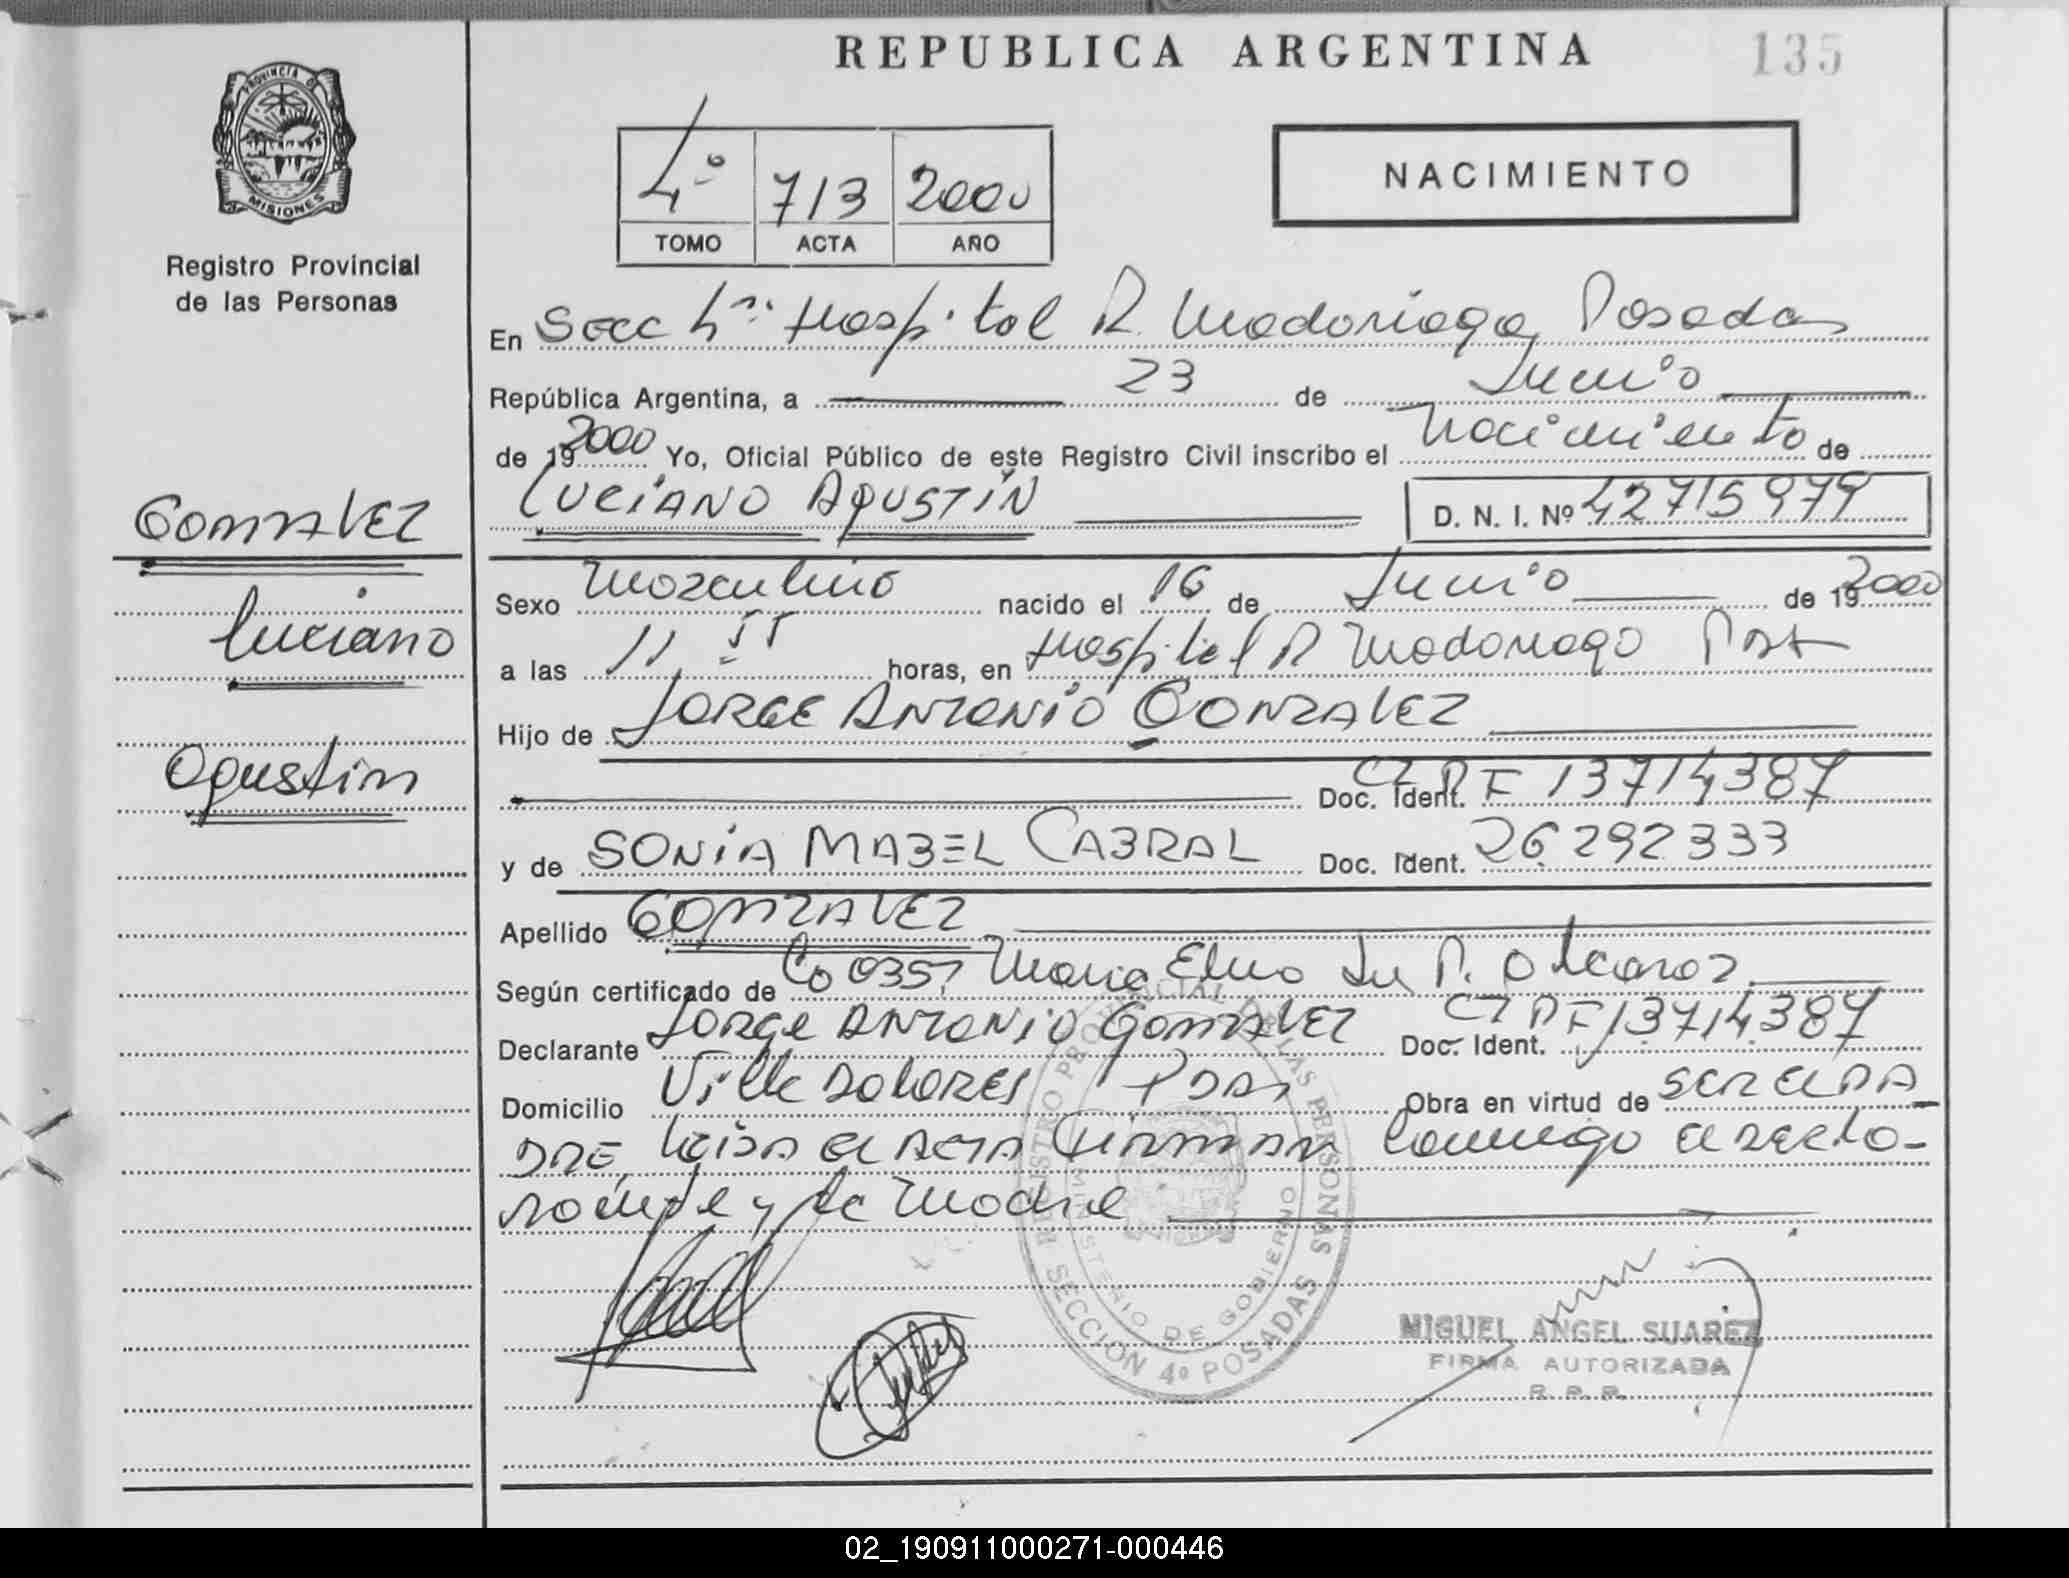 REPUBLICA ARGENTINA
135
PROVINCIA DE
MISIONES
Registro Provincial
de las Personas
4º 713 2000
TOMO ACTA AÑO
NACIMIENTO
En Secc 4ª Hospital R. Madariaga Posadas
República Argentina, a 23 de Junio
de 192000 Yo, Oficial Público de este Registro Civil inscribo el Nacimiento de
LUCIANO AGUSTÍN D. N. I. Nº 42715979
GONZALEZ
Luciano
Agustin
Sexo Masculino nacido el 16 de Junio de 192000
a las 11,55 horas, en Hospital R Madariaga Pdas
Hijo de JORGE ANTONIO GONZALEZ
Doc. Ident. CI PF 13714387
y de SONIA MABEL CABRAL Doc. Ident. 26.292.333
Apellido GONZALEZ
Según certificado de Co 0357 Maria Elena P. Alcaraz
Declarante Jorge ANTONIO GONZALEZ Doc. Ident. CI PF 13714387
Domicilio Villa DOLORES Pdas Obra en virtud de SER EL PA
DRE, Leida el ACTA FIRMAN Conmigo el decla-
rante y la Madre
REGISTRO PROVINCIAL DE LAS PERSONAS
MINISTERIO DE GOBIERNO
SECCION 4º POSADAS
MIGUEL ANGEL SUAREZ
FIRMA AUTORIZADA
R. P. P.
02_190911000271-000446